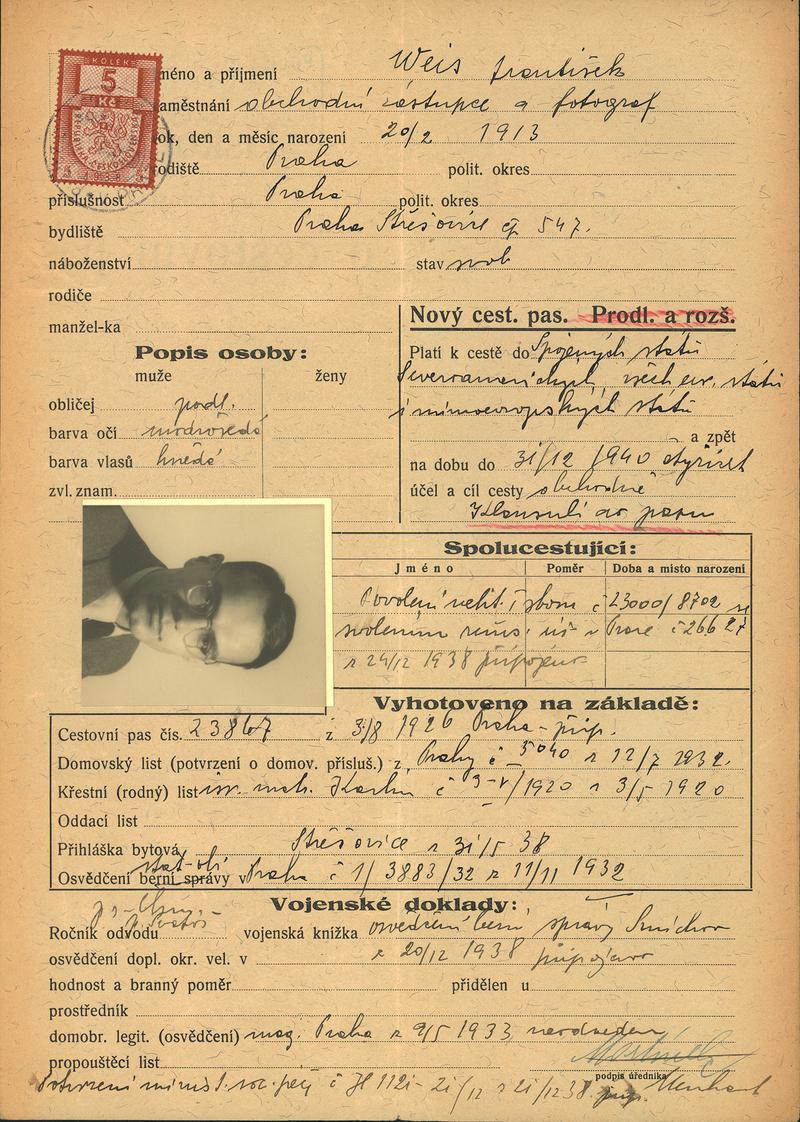 KOLEK
5
Kč
1938
méno a příjmení Weis František
aměstnání obchodní zástupce a fotograf
ok, den a měsíc narození 20/2 1913
rodiště Praha polit. okres
příslušnost Praha polit. okres
bydliště Praha Střešovice čp 547.
náboženství stav svob
rodiče
manžel-ka
Nový cest. pas. Prodl. a rozš.
Popis osoby:
muže ženy
obličej podl.
barva očí modrošedé
barva vlasů hnědé
zvl. znam.
Platí k cestě do Spojených států
Severoamerických, všech evr. států
i mimoevropských států
a zpět
na dobu do 31/12 1940 čtyřicet
účel a cíl cesty obchodně
Klausuli do pasu
Spolucestující:
Jméno Poměr Doba a místo narození
Povolení velit. sboru č 23000/8702 se
svolením v Praze č 26627
z 24/12 1938 připojeno
Vyhotoveno na základě:
Cestovní pas čís. 23867 z 3/8 1926 Praha-
Domovský list (potvrzení o domov. přísluš.) z Prahy č 5040 z 12/7 1932.
Křestní (rodný) list isr. mat. Karlín č /1920 z 3/5 1920
Oddací list
Přihláška bytová Střešovice z 31/5 38
Osvědčení berní správy v stát-obč Praha č 1/3883/32 z 11/11 1932
Vojenské doklady:
Ročník odvodu vojenská knížka osvědčení bern správy Smíchov
osvědčení dopl. okr. vel. v z 20/12 1938 připojeno
hodnost a branný poměr přidělen u
prostředník
domobr. legit. (osvědčení) mag. Praha z 9/5 1933 neodveden
propouštěcí list
podpis úředníka
Potvrzení minist. soc. péče č 21/12 z 21/12 38